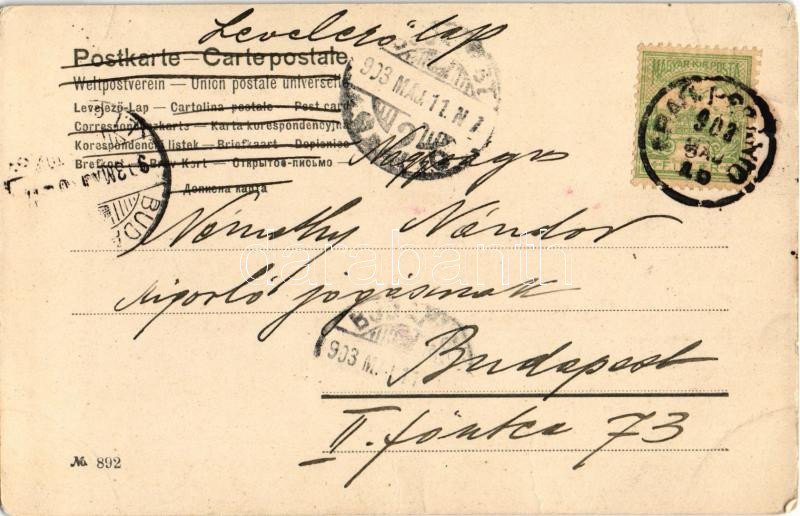 Levelező lap
Postkarte – Carte postale
Weltpostverein – Union postale universelle
Levelező-Lap – Cartolina postale – Post card
Correspondenzkarts – Karta korespondencyjna
Korespondenčni listek – Briefkaart – Dopisnice
Brefkort – Brev-Kort – Открытое-письмо
Дописна карта
MAGYAR KIR. POSTA
903 MAJ. 11. N
903
MAJ
10
903 MAJ
BUDA
Nagyságos
Némethy Nándor
joghallgatónak
903 M
Budapest
II. főutca 73
№ 892
darabanth